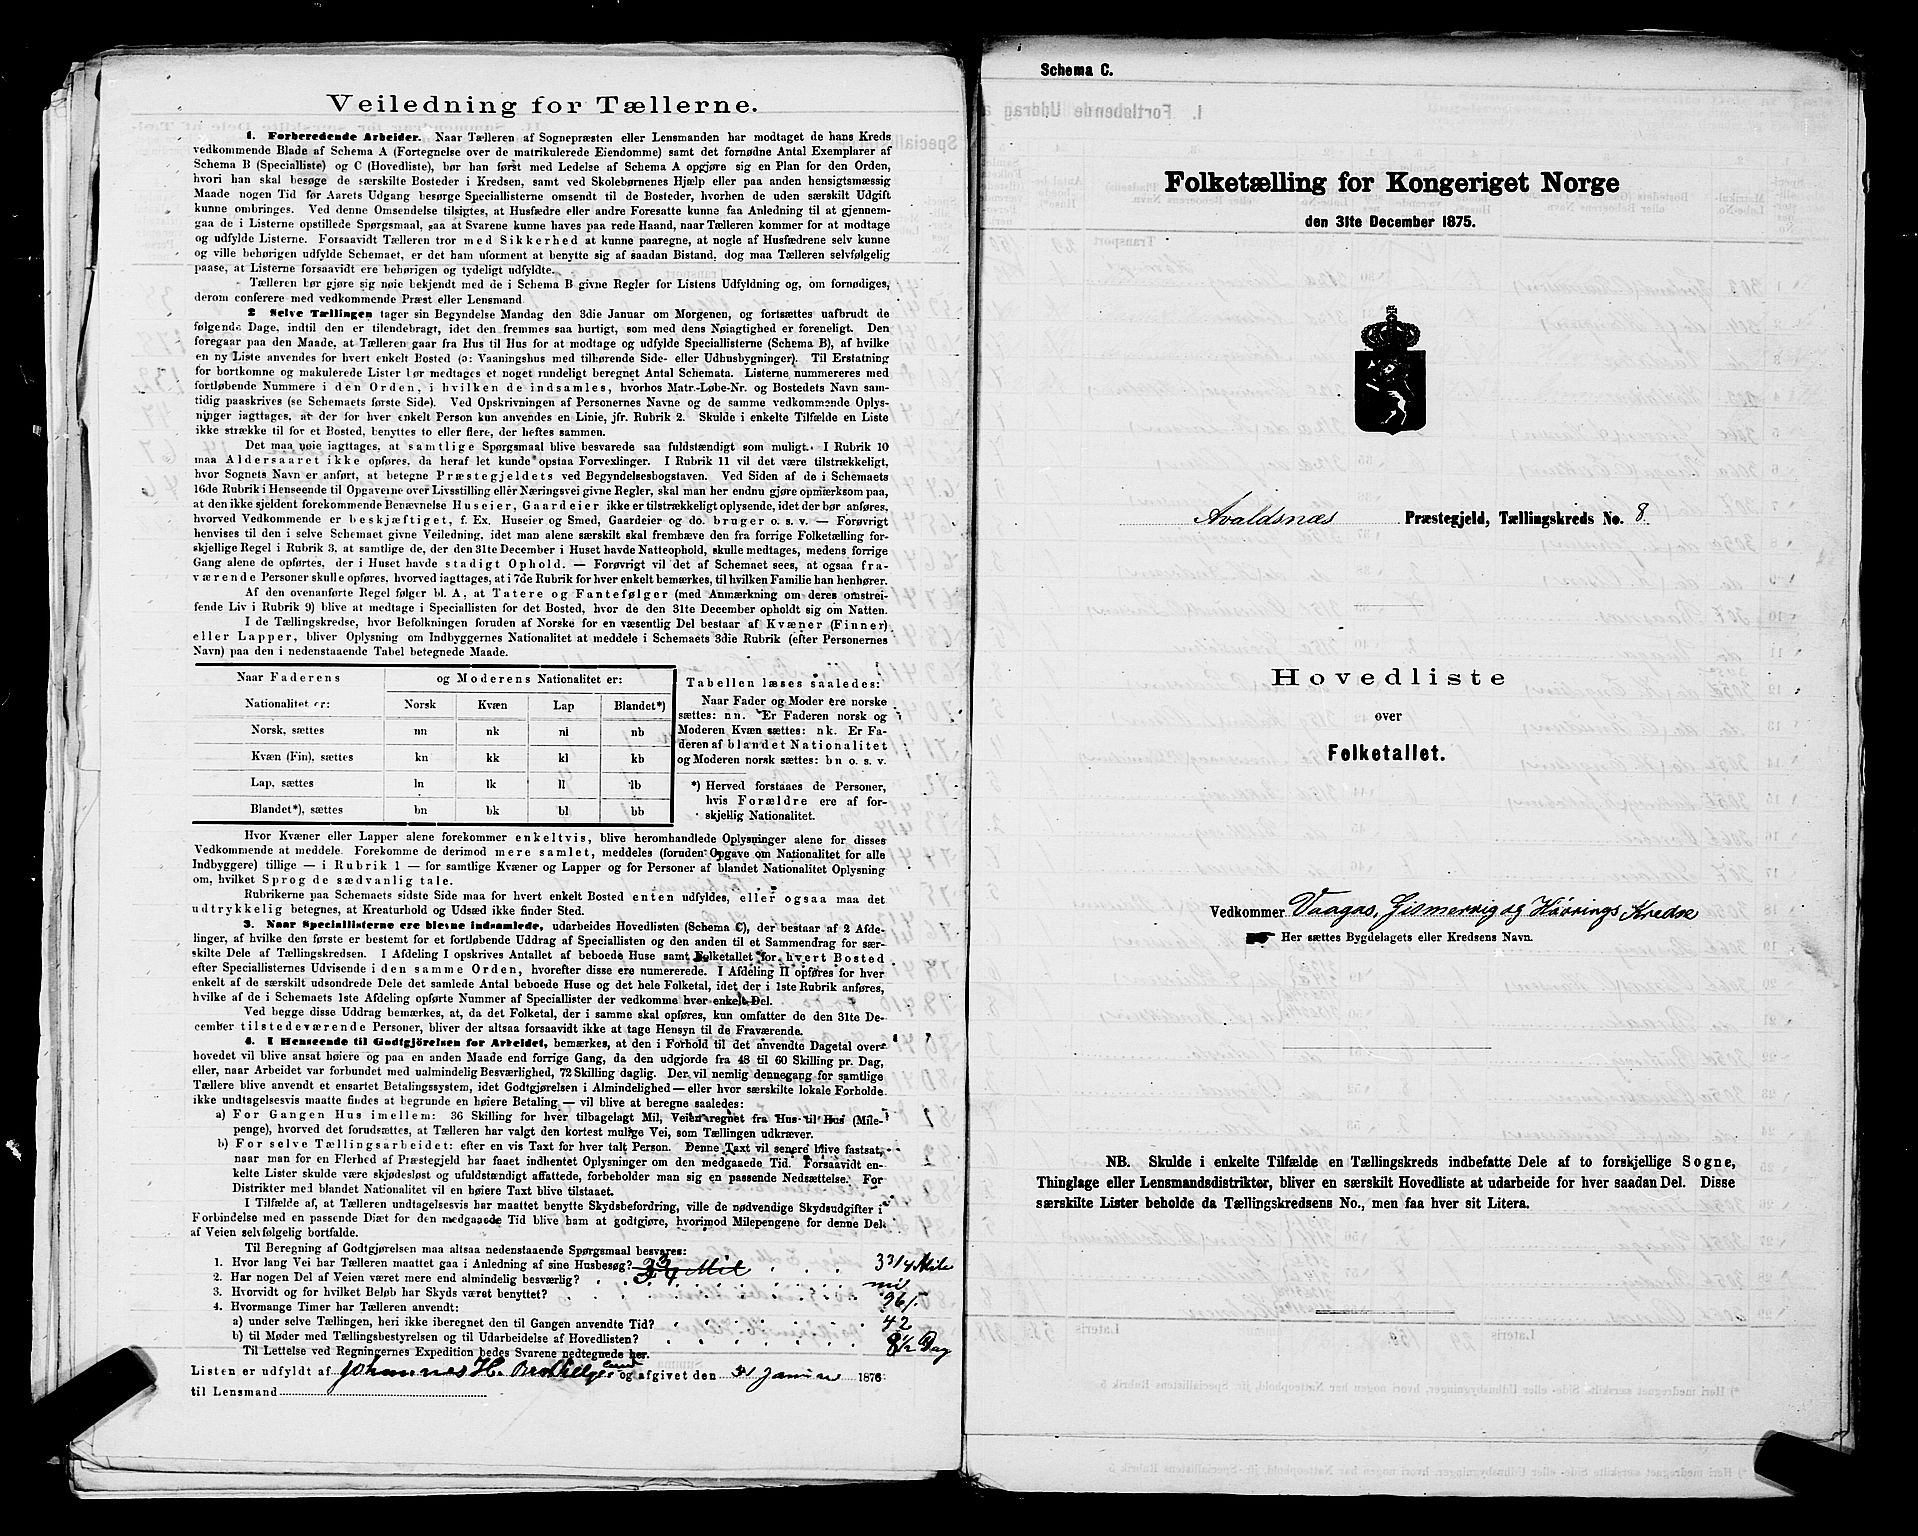 Veiledning for Tællerne.
1. Forberedende Arbeider. Naar Tælleren af Sognepræsten eller Lensmanden har modtaget de hans Kreds
vedkommende Blade af Schema A (Fortegnelse over de matrikulerede Eiendomme) samt det fornødne Antal Exemplarer af
Schema B (Specialliste) og C (Hovedliste), bør han først med Ledelse af Schema A opgjøre sig en Plan for den Orden,
hvori han skal besøge de særskilte Bosteder i Kredsen, samt ved Skolebørnenes Hjælp eller paa anden hensigtsmæssig
Maade nogen Tid før Aarets Udgang besørge Speciallisterne omsendt til de Bosteder, hvorhen de uden særskilt Udgift
kunne ombringes. Ved denne Omsendelse tilsigtes, at Husfædre eller andre Foresatte kunne faa Anledning til at gjennem-
gaa de i Listerne opstillede Spørgsmaal, saa at Svarene kunne haves paa rede Haand, naar Tælleren kommer for at modtage
og udfylde Listerne. Forsaavidt Tælleren tror med Sikkerhed at kunne paaregne, at nogle af Husfædrene selv kunne
og ville behørigen udfylde Schemaet, er det ham uforment at benytte sig af saadan Bistand, dog maa Tælleren selvfølgelig
paase, at Listerne forsaavidt ere behørigen og tydeligt udfyldte.
Tælleren bør gjøre sig nøie bekjendt med de i Schema B givne Regler for Listens Udfyldning og, om fornødiges,
derom conferere med vedkommende Præst eller Lensmand
2 Selve Tællingen tager sin Begyndelse Mandag den 3die Januar om Morgenen, og fortsættes uafbrudt de
følgende Dage, indtil den er tilendebragt, idet den fremmes saa hurtigt, som med dens Nøiagtighed er foreneligt. Den
foregaar paa den Maade, at Tælleren gaar fra Hus til Hus for at modtage og udfylde Speciallisterne (Schema B), af hvilke
en ny Liste anvendes for hvert enkelt Bosted (ɔ: Vaaningshus med tilhørende Side- eller Udhusbygninger). Til Erstatning
for bortkomne og makulerede Lister bør medtages et noget rundeligt beregnet Antal Schemata. Listerne nummereres med
fortløbende Nummere i den Orden, i hvilken de indsamles, hvorhos Matr.-Løbe-Nr. og Bostedets Navn sam-
tidig paaskrives (se Schemaets første Side). Ved Opskrivningen af Personernes Navne og de samme vedkommende Oplys-
ninger iagttages, at der for hver enkelt Person kun anvendes en Linie, jfr. Rubrik 2. Skulde i enkelte Tilfælde en Liste
ikke strække til for et Bosted, benyttes to eller flere, der heftes sammen.
Det maa nøie iagttages, at samtlige Spørgsmaal blive besvarede saa fuldstændigt som muligt. I Rubrik 10
maa Aldersaaret ikke opføres, da heraf let kunde opstaa Forvexlinger. I Rubrik 11 vil det være tilstrækkeligt,
hvor Sognets Navn er anført, at betegne Præstegjeldets ved Begyndelsesbogstaven. Ved Siden af de i Schemaets
16de Rubrik i Henseende til Opgaverne over Livsstilling eller Næringsvei givne Regler, skal man her endnu gjøre opmærksom paa,
at den ikke sjeldent forekommende Benævnelse Huseier, Gaardeier ikke er tilstrækkelig oplysende, idet der bør anføres,
hvorved Vedkommende er beskjæftiget, f. Ex. Huseier og Smed, Gaardeier og do. bruger o. s. v. — Forøvrigt
henvises til den i selve Schemaet givne Veiledning, idet man alene særskilt skal fremhæve den fra forrige Folketælling for-
skjellige Regel i Rubrik 3, at samtlige de, der den 31te December i Huset havde Natteophold, skulle medtages, medens forrige
Gang alene de opførtes, der i Huset havde stadigt Ophold. — Forøvrigt vil det af Schemaet sees, at ogsaa fra-
værende Personer skulle opføres, hvorved iagttages, at i 7de Rubrik for hver enkelt bemærkes, til hvilken Familie han henhører.
Af den ovenanførte Regel følger bl. A, at Tatere og Fantefølger (med Anmærkning om deres omstrei-
fende Liv i Rubrik 9) blive at medtage i Speciallisten for det Bosted, hvor de den 31te December opholdt sig om Natten.
I de Tællingskredse, hvor Befolkningen foruden af Norske for en væsentlig Del bestaar af Kvæner (Finner)
eller Lapper, bliver Oplysning om Indbyggernes Nationalitet at meddele i Schemaets 3die Rubrik (efter Personernes
Navn) paa den i nedenstaaende Tabel betegnede Maade.
Naar Faderens og Moderens Nationalitet er:
Nationalitet er: Norsk Kvæn Lap Blandet*)
Norsk, sættes nn nk nl nb
Kvæn (Fin), sættes kn kk kl kb
Lap, sættes ln lk ll lb
Blandet*), sættes bn bk bl bb
Tabellen læses saaledes:
Naar Fader og Moder ere norske
sættes: nn. Er Faderen norsk og
Moderen Kvæn sættes: nk. Er Fa-
deren af blandet Nationalitet
og Moderen norsk sættes: bn o. s. v.
*) Herved forstaaes de Personer,
hvis Forældre ere af for-
skjellig Nationalitet.
Hvor Kvæner eller Lapper alene forekommer enkeltvis, blive heromhandlede Oplysninger alene for disses
Vedkommende at meddele. Forekomme de derimod mere samlet, meddeles (foruden Opgave om Nationalitet for alle
Indbyggere) tillige — i Rubrik 1 — for samtlige Kvæner og Lapper og for Personer af blandet Nationalitet Oplysning
om, hvilket Sprog de sædvanlig tale.
Rubrikerne paa Schemaets sidste Side maa for hvert enkelt Bosted enten udfyldes, eller ogsaa maa det
udtrykkelig betegnes, at Kreaturhold og Udsæd ikke finder Sted.
3. Naar Speciallisterne ere blevne indsamlede, udarbeides Hovedlisten (Schema C), der bestaar af 2 Afde-
linger, af hvilke den første er bestemt for et fortløbende Uddrag af Speciallisten og den anden til et Sammendrag for sær-
skilte Dele af Tællingskredsen. I Afdeling I opskrives Antallet af beboede Huse samt Folketallet for hvert Bosted
efter Speciallisternes Udvisende i den samme Orden, hvorefter disse ere numererede. I Afdeling II opføres for hver
enkelt af de særskilt udsondrede Dele det samlede Antal beboede Huse og det hele Folketal, idet der i 1ste Rubrik anføres,
hvilke af de i Schemaets 1ste Afdeling opførte Nummer af Speciallister der vedkomme hver enkelt Del.
Ved begge disse Uddrag bemærkes, at, da det Folketal, der i samme skal opføres, kun omfatter de den 31te De-
cember tilstedeværende Personer, bliver der altsaa forsaavidt ikke at tage Hensyn til de Fraværende.
4. I Henseende til Godtgjörelsen for Arbeidet, bemærkes, at den i Forhold til det anvendte Dagetal over-
hovedet vil blive ansat høiere og paa en anden Maade end forrige Gang, da den udgjorde fra 48 til 60 Skilling pr. Dag,
eller, naar Arbeidet var forbundet med ualmindelig Besværlighed, 72 Skilling daglig. Der vil nemlig dennegang for samtlige
Tællere blive anvendt et ensartet Betalingssystem, idet Godtgjørelsen i Almindelighed — eller hvor særskilte lokale Forholde
ikke undtagelsesvis maatte findes at begrunde en høiere Betaling — vil blive at beregne saaledes:
a) For Gangen Hus imellem: 36 Skilling for hver tilbagelagt Mil, Veien regnet fra Hus til Hus (Mile-
penge), hvorved det forudsættes, at Tælleren har valgt den kortest mulige Vei, som Tællingen udkræver.
b) For selve Tællingsarbeidet: efter en vis Taxt for hver talt Person. Denne Taxt vil senere blive fastsat,
naar man for en Flerhed af Præstegjeld har faaet indhentet Oplysninger om den medgaaede Tid. Forsaavidt en-
kelte Lister skulde være skjødesløst og ufuldstændigt affattede, forbeholder man sig en passende Nedsættelse. For
Distrikter med blandet Nationalitet vil en høiere Taxt blive tilstaaet.
I Tilfælde af, at Tælleren undtagelsesvis har maattet benytte Skydsbefordring, ville de nødvendige Skydsudgifter i
Forbindelse med en passende Diæt for den medgaaede Tid blive ham at godtgjøre, hvorimod Milepengene for denne Del
af Veien selvfølgelig bortfalde.
Til Beregning af Godtgjørelsen maa altsaa nedenstaaende Spørgsmaal besvares:
1. Hvor lang Vei har Tælleren maattet gaa i Anledning af sine Husbesøg? 3 3/4 Mil
2. Har nogen Del af Veien været mere end almindelig besværlig?
3. Hvorvidt og for hvilket Beløb har Skyds været benyttet? 96
4. Hvormange Timer har Tælleren anvendt:
a) under selve Tællingen, heri ikke iberegnet den til Gangen anvendte Tid? 42
b) til Møder med Tællingsbestyrelsen og til Udarbeidelse af Hovedlisten? 8½ Dag
Til Lettelse ved Regningernes Expedition bedes Svarene nedtegnede her.
Listen er udfyldt af Johannes H. og afgivet den 31 Januar 1876
til Lensmand
Schema C.
Folketælling for Kongeriget Norge
den 31te December 1875.
Avaldsnæs Præstegjeld, Tællingskreds No. 8.
Hovedliste
over
Folketallet.
Vedkommer Vaagas, Gismervig og Høvrings Kredse
Her sættes Bygdelagets eller Kredsens Navn.
NB. Skulde i enkelte Tilfælde en Tællingskreds indbefatte Dele af to forskjellige Sogne,
Thinglage eller Lensmandsdistrikter, bliver en særskilt Hovedliste at udarbeide for hver saadan Del. Disse
særskilte Lister beholde da Tællingskredsens No., men faa hver sit Litera.